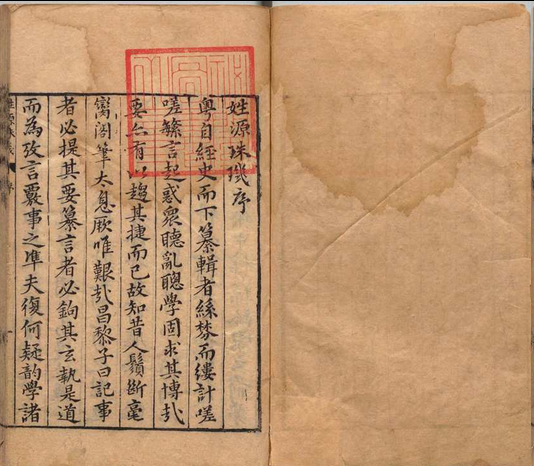 姓源珠璣序
粤自經史而下纂輯者絲棼而縷計嗟
嗟繁言起惑衆聽亂聰學固求其博於
要亦有以趨其捷而已故知昔人鬚斷毫
窩閣筆太息厥唯艱哉昌黎子曰記事
者必提其要纂言者必鉤其玄執是道
而為攷言覈事之準夫復何疑韵學諸